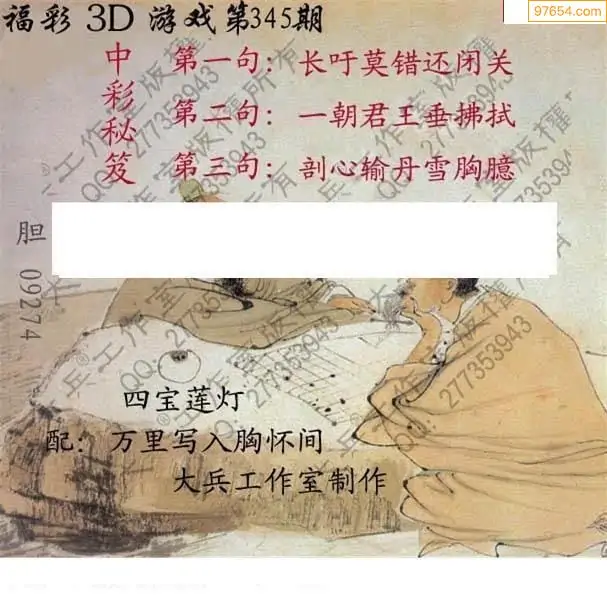 97654.com
福彩 3D 游戏 第345期
中彩秘笈
第一句：长吁莫错还闭关
第二句：一朝君王垂拂拭
第三句：剖心输丹雪胸臆
胆 09274
四宝莲灯
配：万里写入胸怀间
大兵工作室制作
大兵®工作室版权所有
QQ：277353943